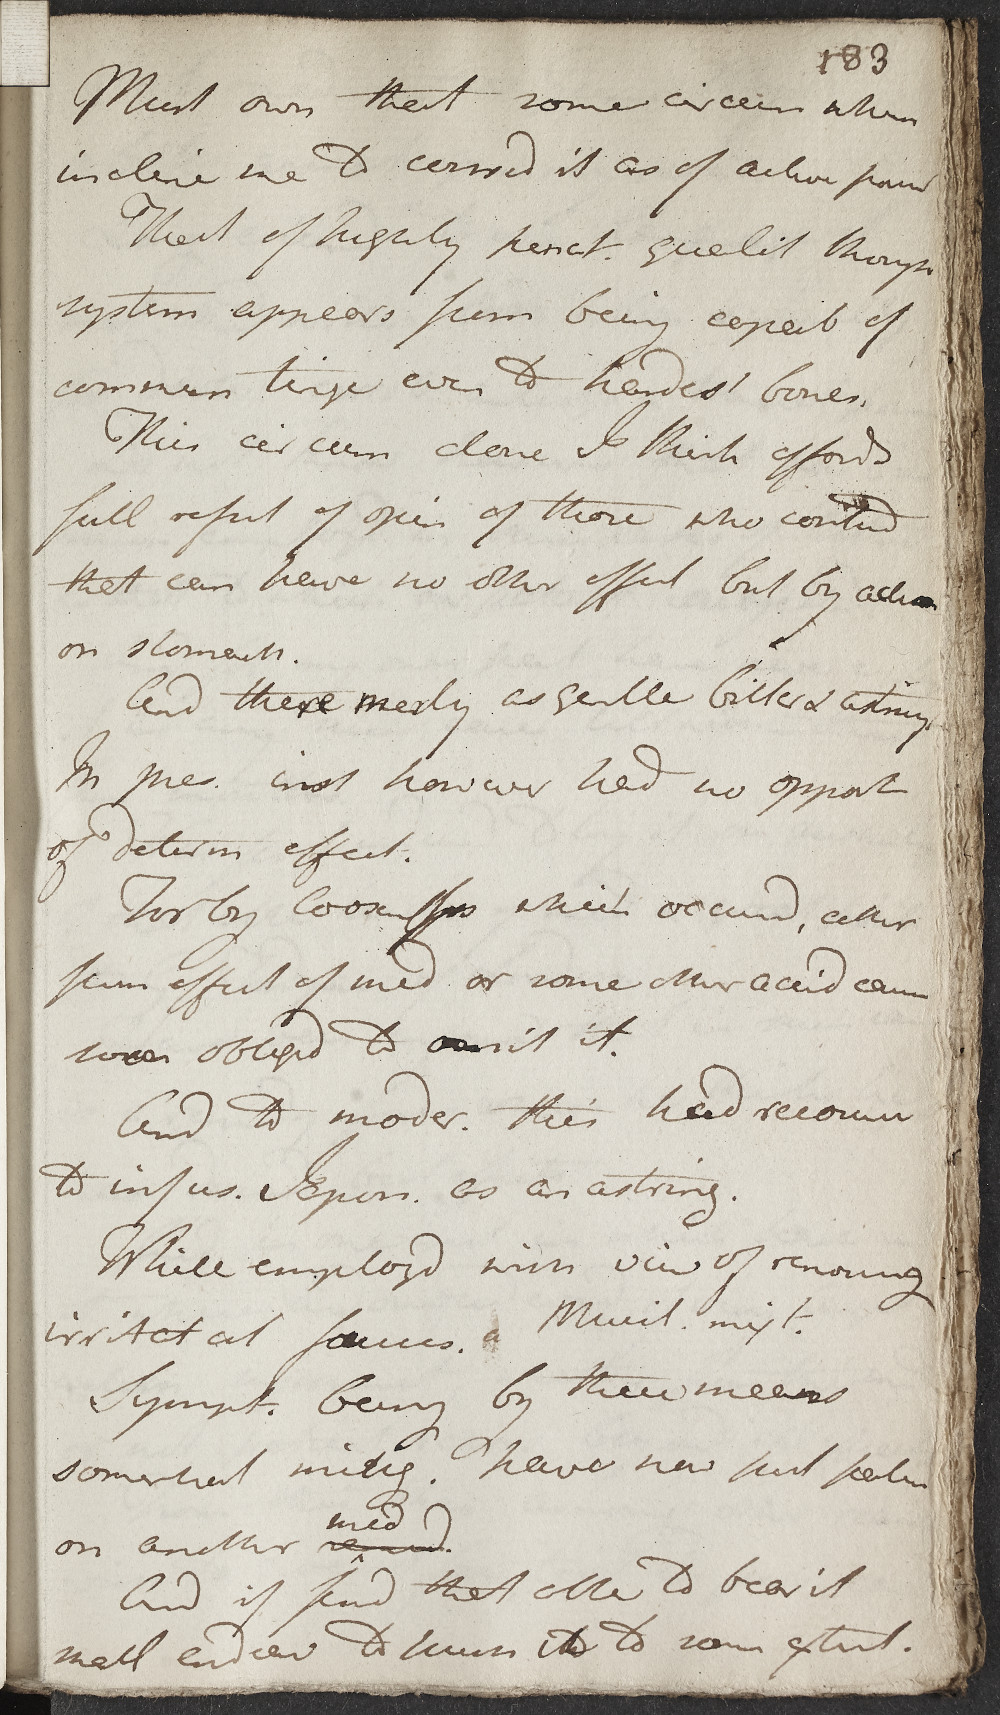 183
Must own that some circum when
incline me to consid it as of active powr
That of highly penet. qualit through
system appears from being capab of
commun tinge even to hardest bones.
This circum alone I think affords
full refut of opin of those who contend
that can have no other effect but by action
on stomach.
And there merly as gentle bitter & astring.
In pres. inst however had no opport
of determ effect.
For by looseness which occurd, either
from effect of med or some other accid caus
soon obliged to omit it.
And to moder. this had recour
to infus. Japon. as an astring.
While employd with view of removing
irritat at fauces. a Mucil. mixt.
Sympt. being by these means
somewhat mitig. have now put patien
on another med
And if find that able to bear it
shall endeav to push it to some extent.